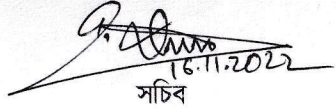 16.11.2022
সচিব